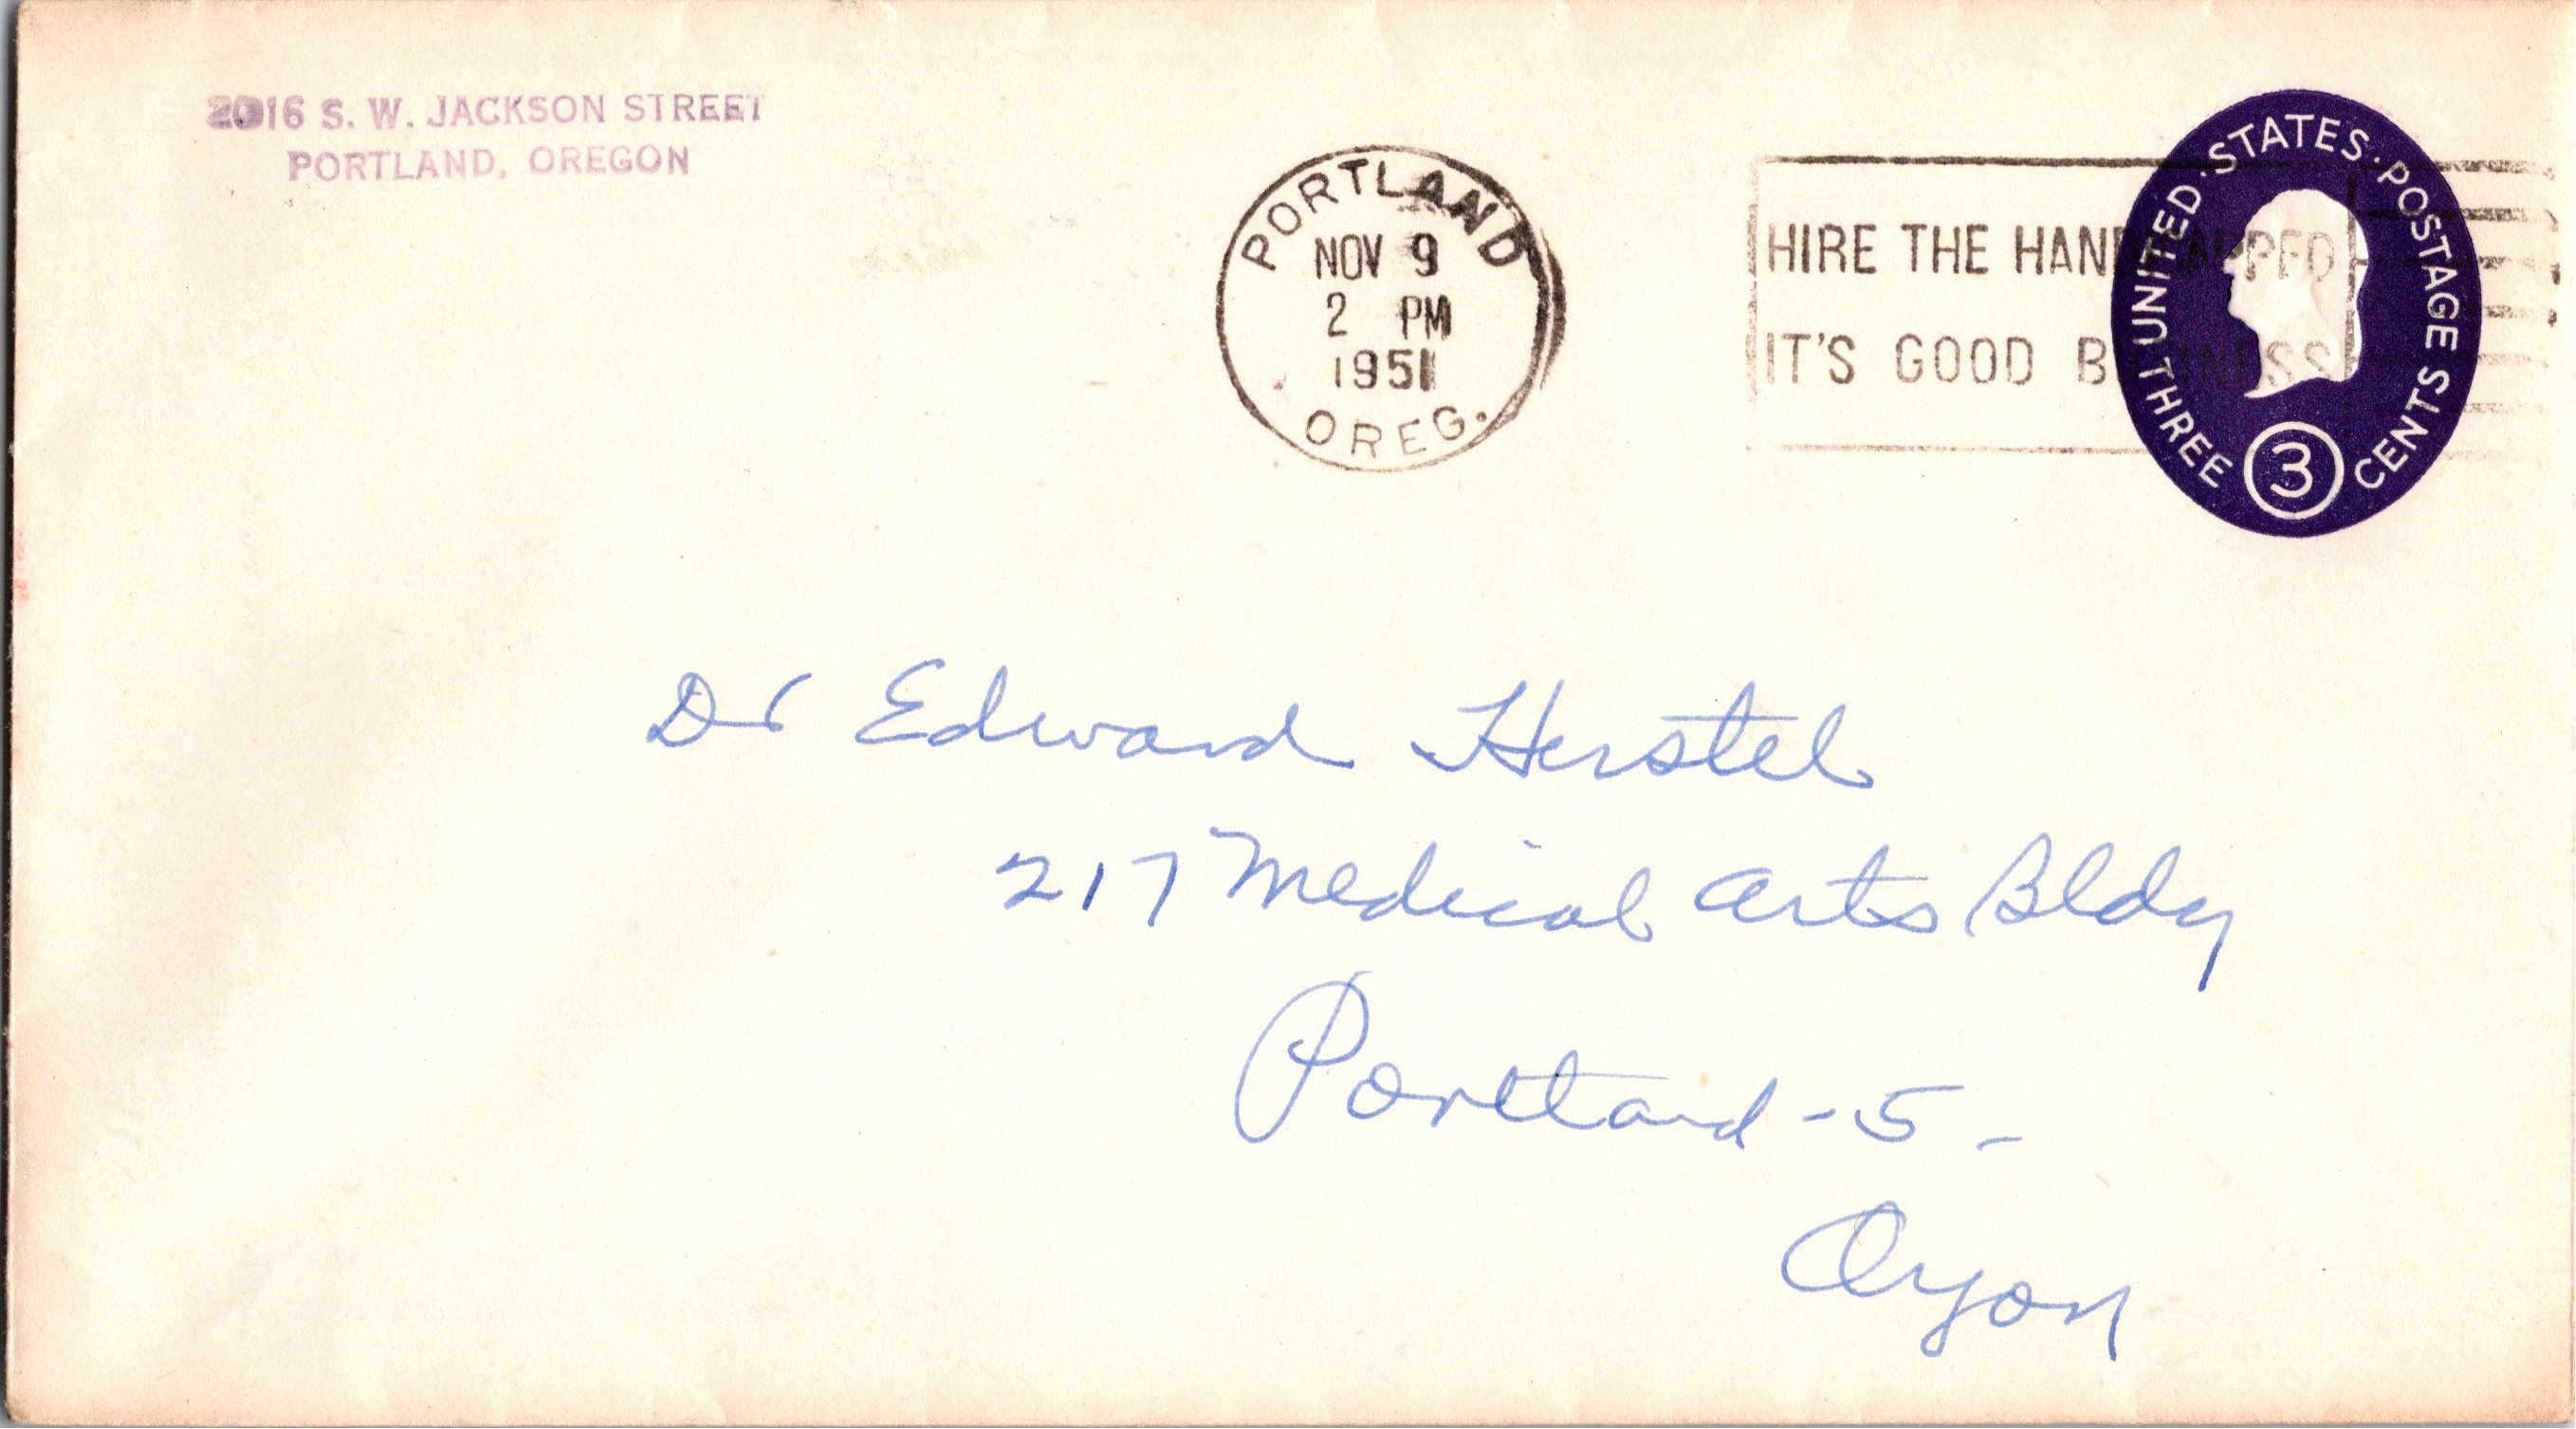 2016 S. W. JACKSON STREET
PORTLAND, OREGON
PORTLAND
NOV 9
2 PM
1951
OREG.
HIRE THE HANDICAPPED
IT'S GOOD BUSINESS
UNITED · STATES · POSTAGE
THREE 3 CENTS
Dr Edward Herstel
217 Medical Arts Bldg
Portland - 5 -
Oregon